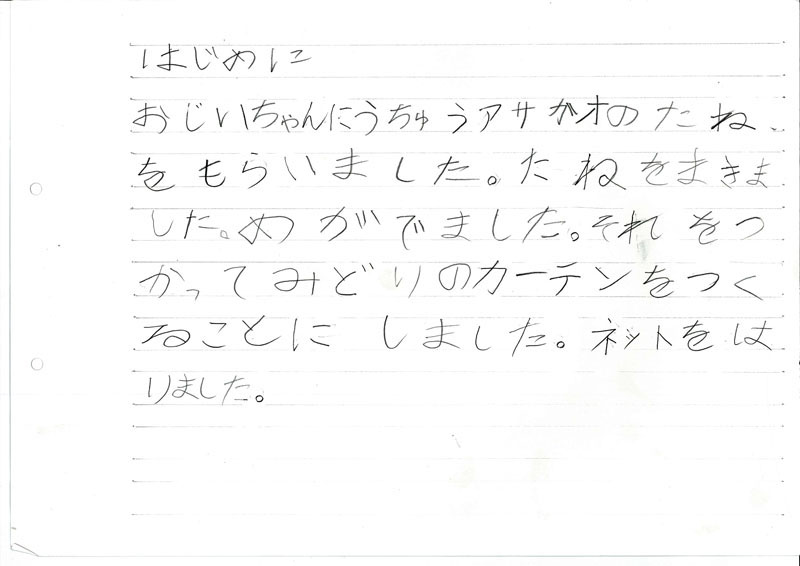 はじめに
おじいちゃんにうちゅうアサガオのたね
をもらいました。たねをまきま
した。めがでました。それをつ
かってみどりのカーテンをつく
ることにしました。ネットをは
りました。